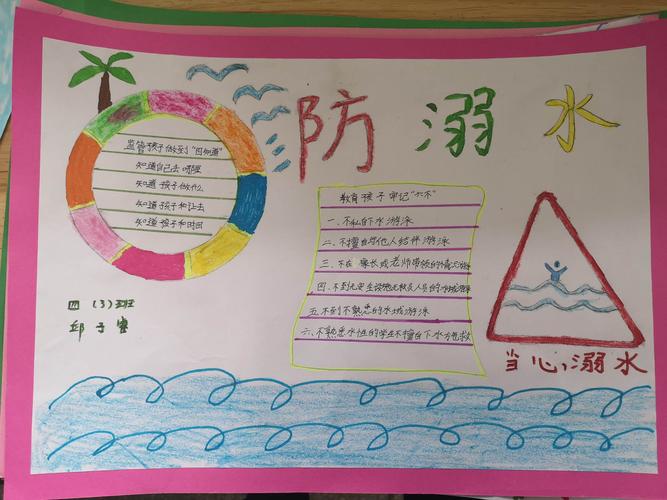 防溺水
监管孩子做到"四知道"
知道自己去哪里
知道孩子做什么
知道孩子和去
知道孩子和时回
教育孩子牢记"六不"
一、不私自下水游泳
二、不擅自与他人结伴游泳
三、不在家长或老师带领的情况游
四、不到无安全设施无救人员的水域游
五、不到不熟悉的水域游泳
六、不熟悉水性的学生不擅自下水施救
四(3)班
邱子
当心,溺水